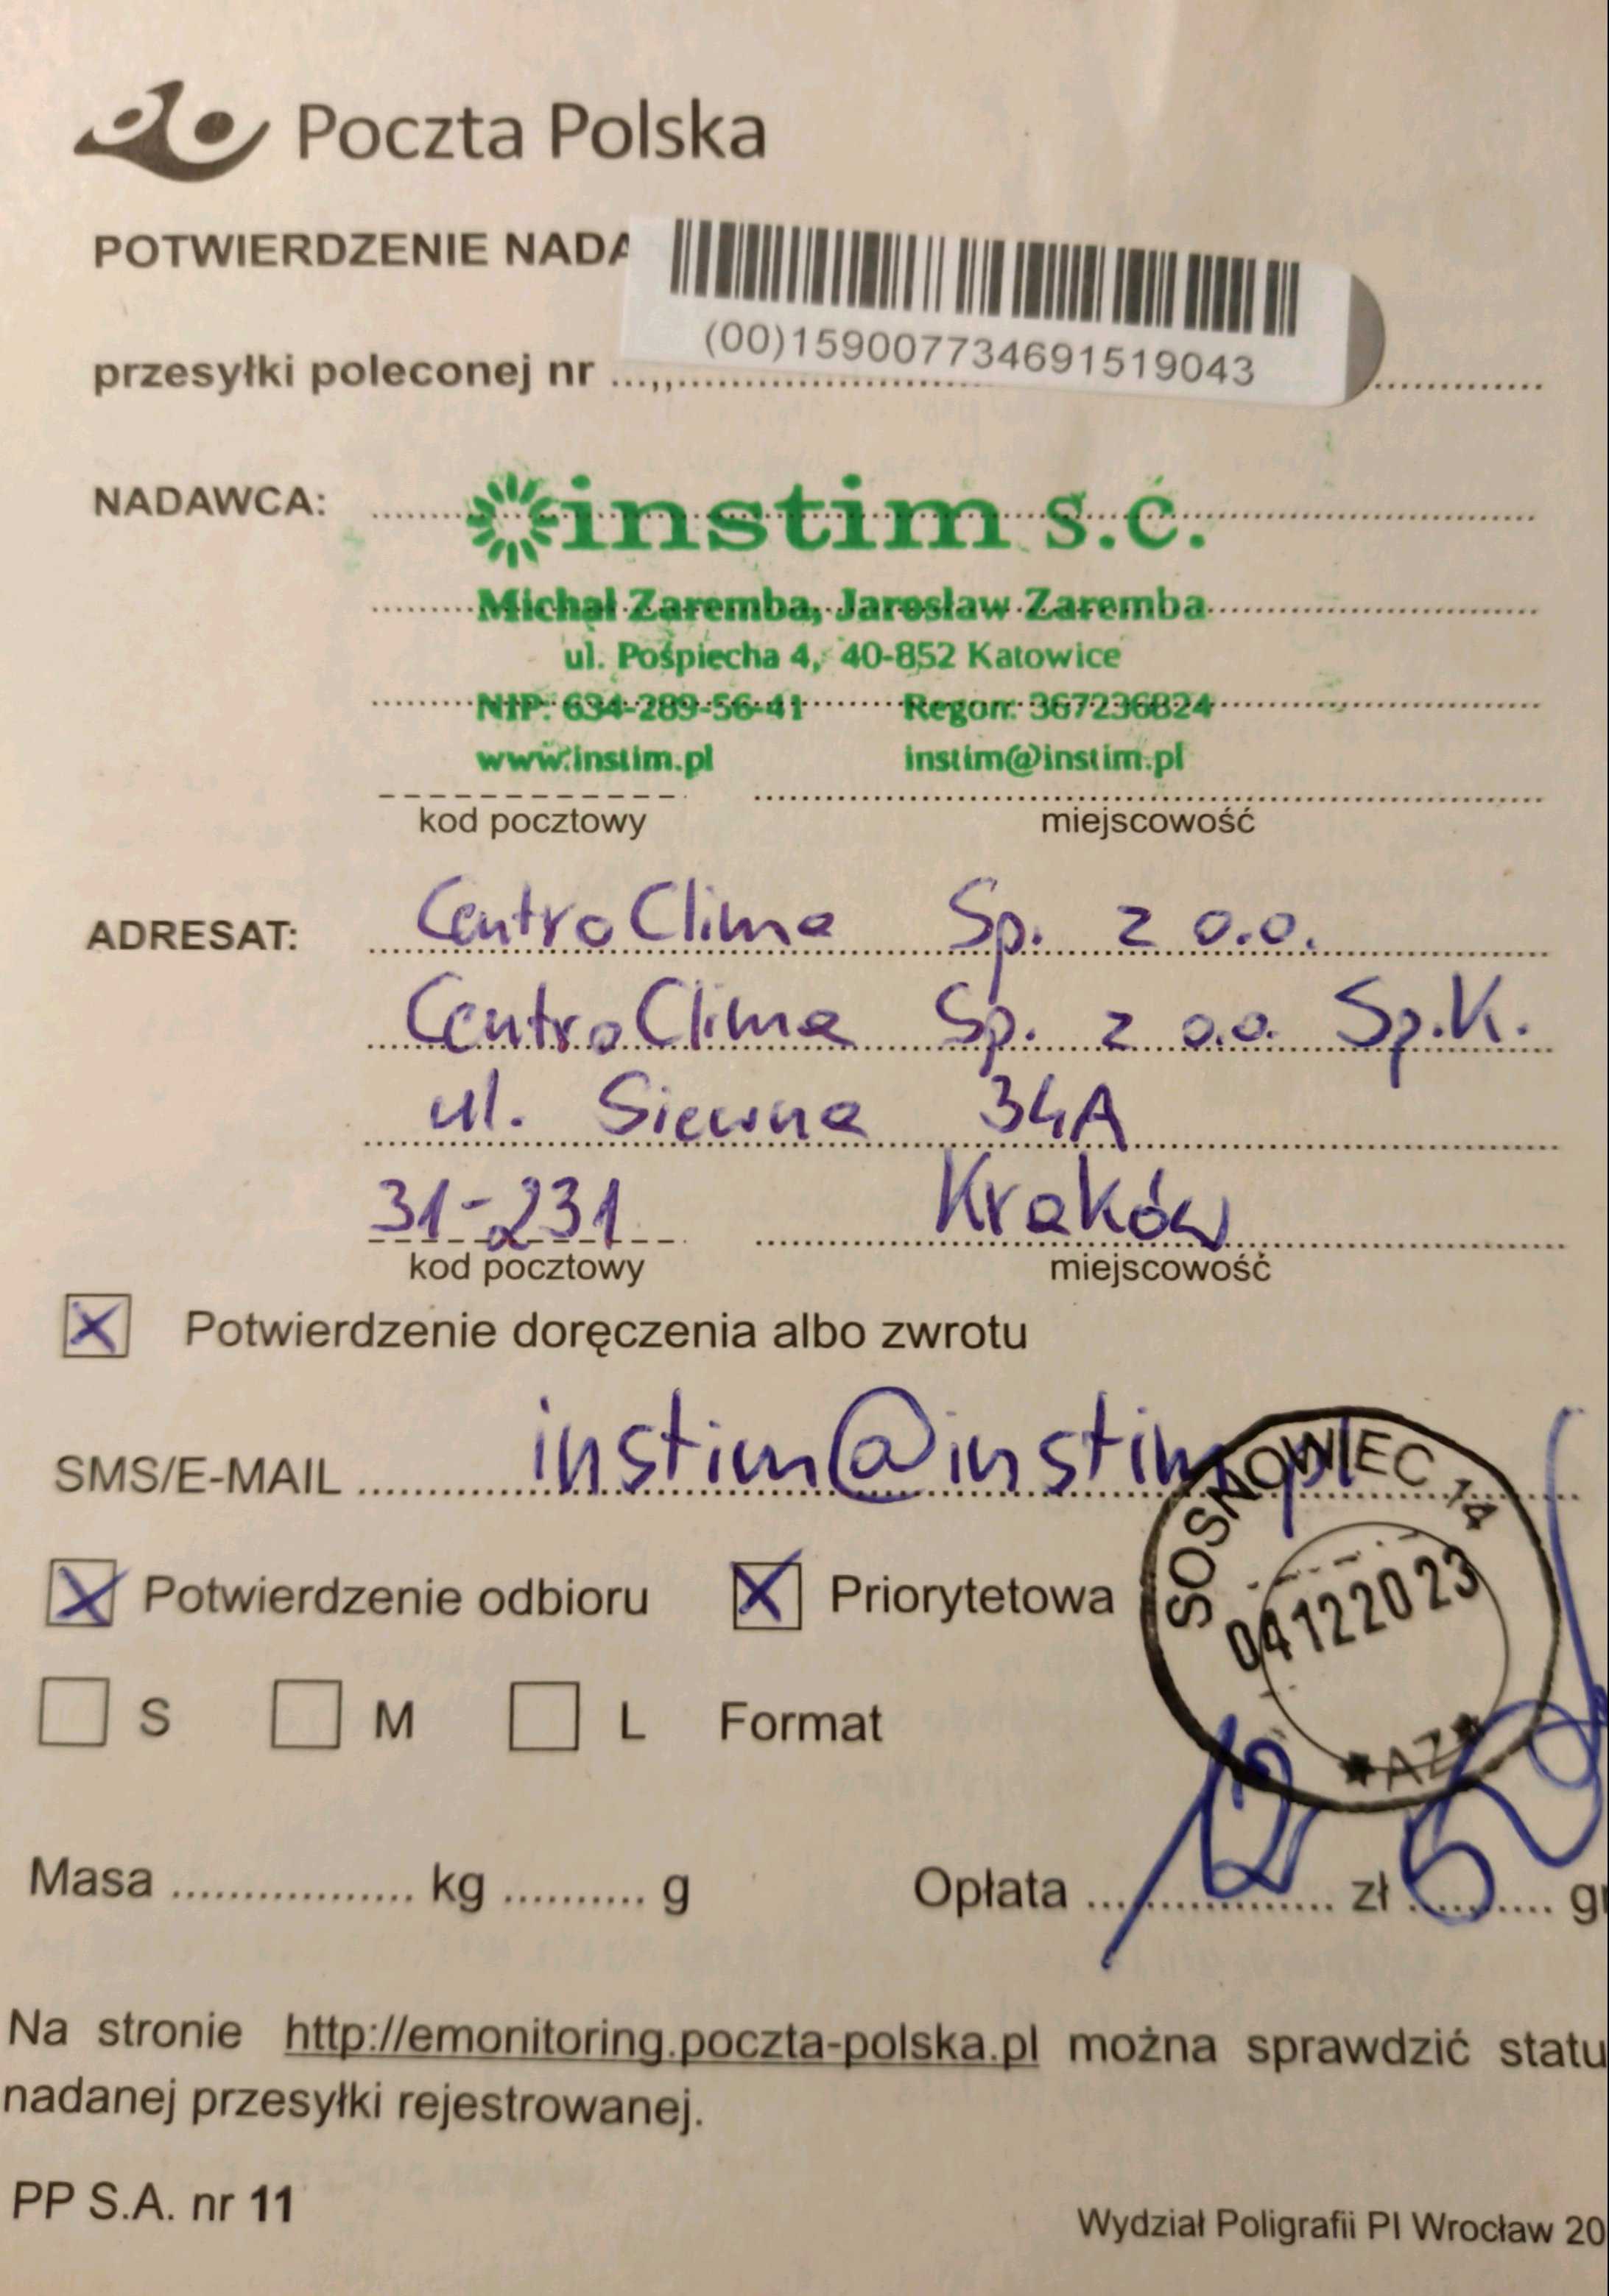 Poczta Polska
POTWIERDZENIE NADA
(00)159007734691519043
przesyłki poleconej nr
NADAWCA:
instim s.c.
Michał Zaremba, Jarosław Zaremba
ul. Pośpiecha 4, 40-852 Katowice
NIP: 634-289-56-41 Regon: 367236824
www.instim.pl instim@instim.pl
kod pocztowy miejscowość
ADRESAT: CentroClima Sp. z o.o.
CentroClima Sp. z o.o. Sp.K.
ul. Siewna 34A
31-231 Kraków
kod pocztowy miejscowość
Potwierdzenie doręczenia albo zwrotu
SMS/E-MAIL instim@instim.pl
SOSNOWIEC 14
Potwierdzenie odbioru Priorytetowa
04122023
AZ
S M L Format
Masa kg g Opłata 12 zł 50 gr
Na stronie http://emonitoring.poczta-polska.pl można sprawdzić statu
nadanej przesyłki rejestrowanej.
PP S.A. nr 11
Wydział Poligrafii PI Wrocław 20